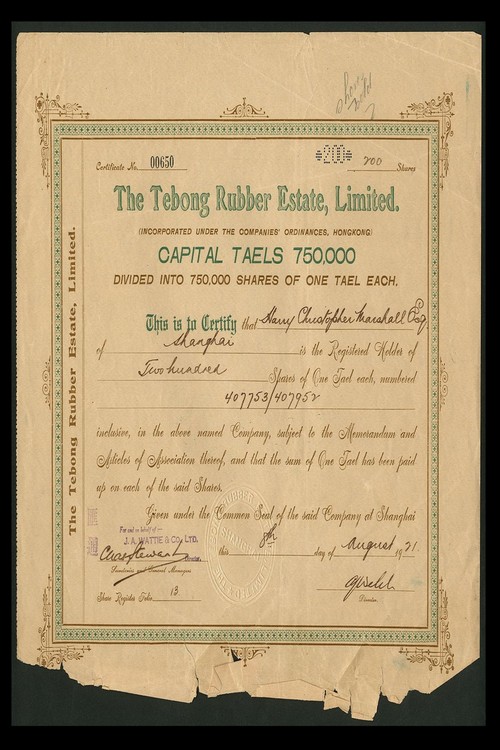 Certificate No. 00650
200
200 Shares
The Tebong Rubber Estate, Limited.
(INCORPORATED UNDER THE COMPANIES' ORDINANCES, HONGKONG)
CAPITAL TAELS 750,000
DIVIDED INTO 750,000 SHARES OF ONE TAEL EACH.
This is to Certify that Harry Christopher Marshall Esq
of Shanghai is the Registered Holder of
Two hundred Shares of One Tael each, numbered
407753/407952
inclusive, in the above named Company, subject to the Memorandum and
Articles of Association thereof, and that the sum of One Tael has been paid
up on each of the said Shares.
Given under the Common Seal of the said Company at Shanghai
this 8th day of August 1921
For and on behalf of
J. A. WATTIE & CO., LTD.
Director.
Secretaries and General Managers
Share Register Folio 13
Director
The Tebong Rubber Estate, Limited.